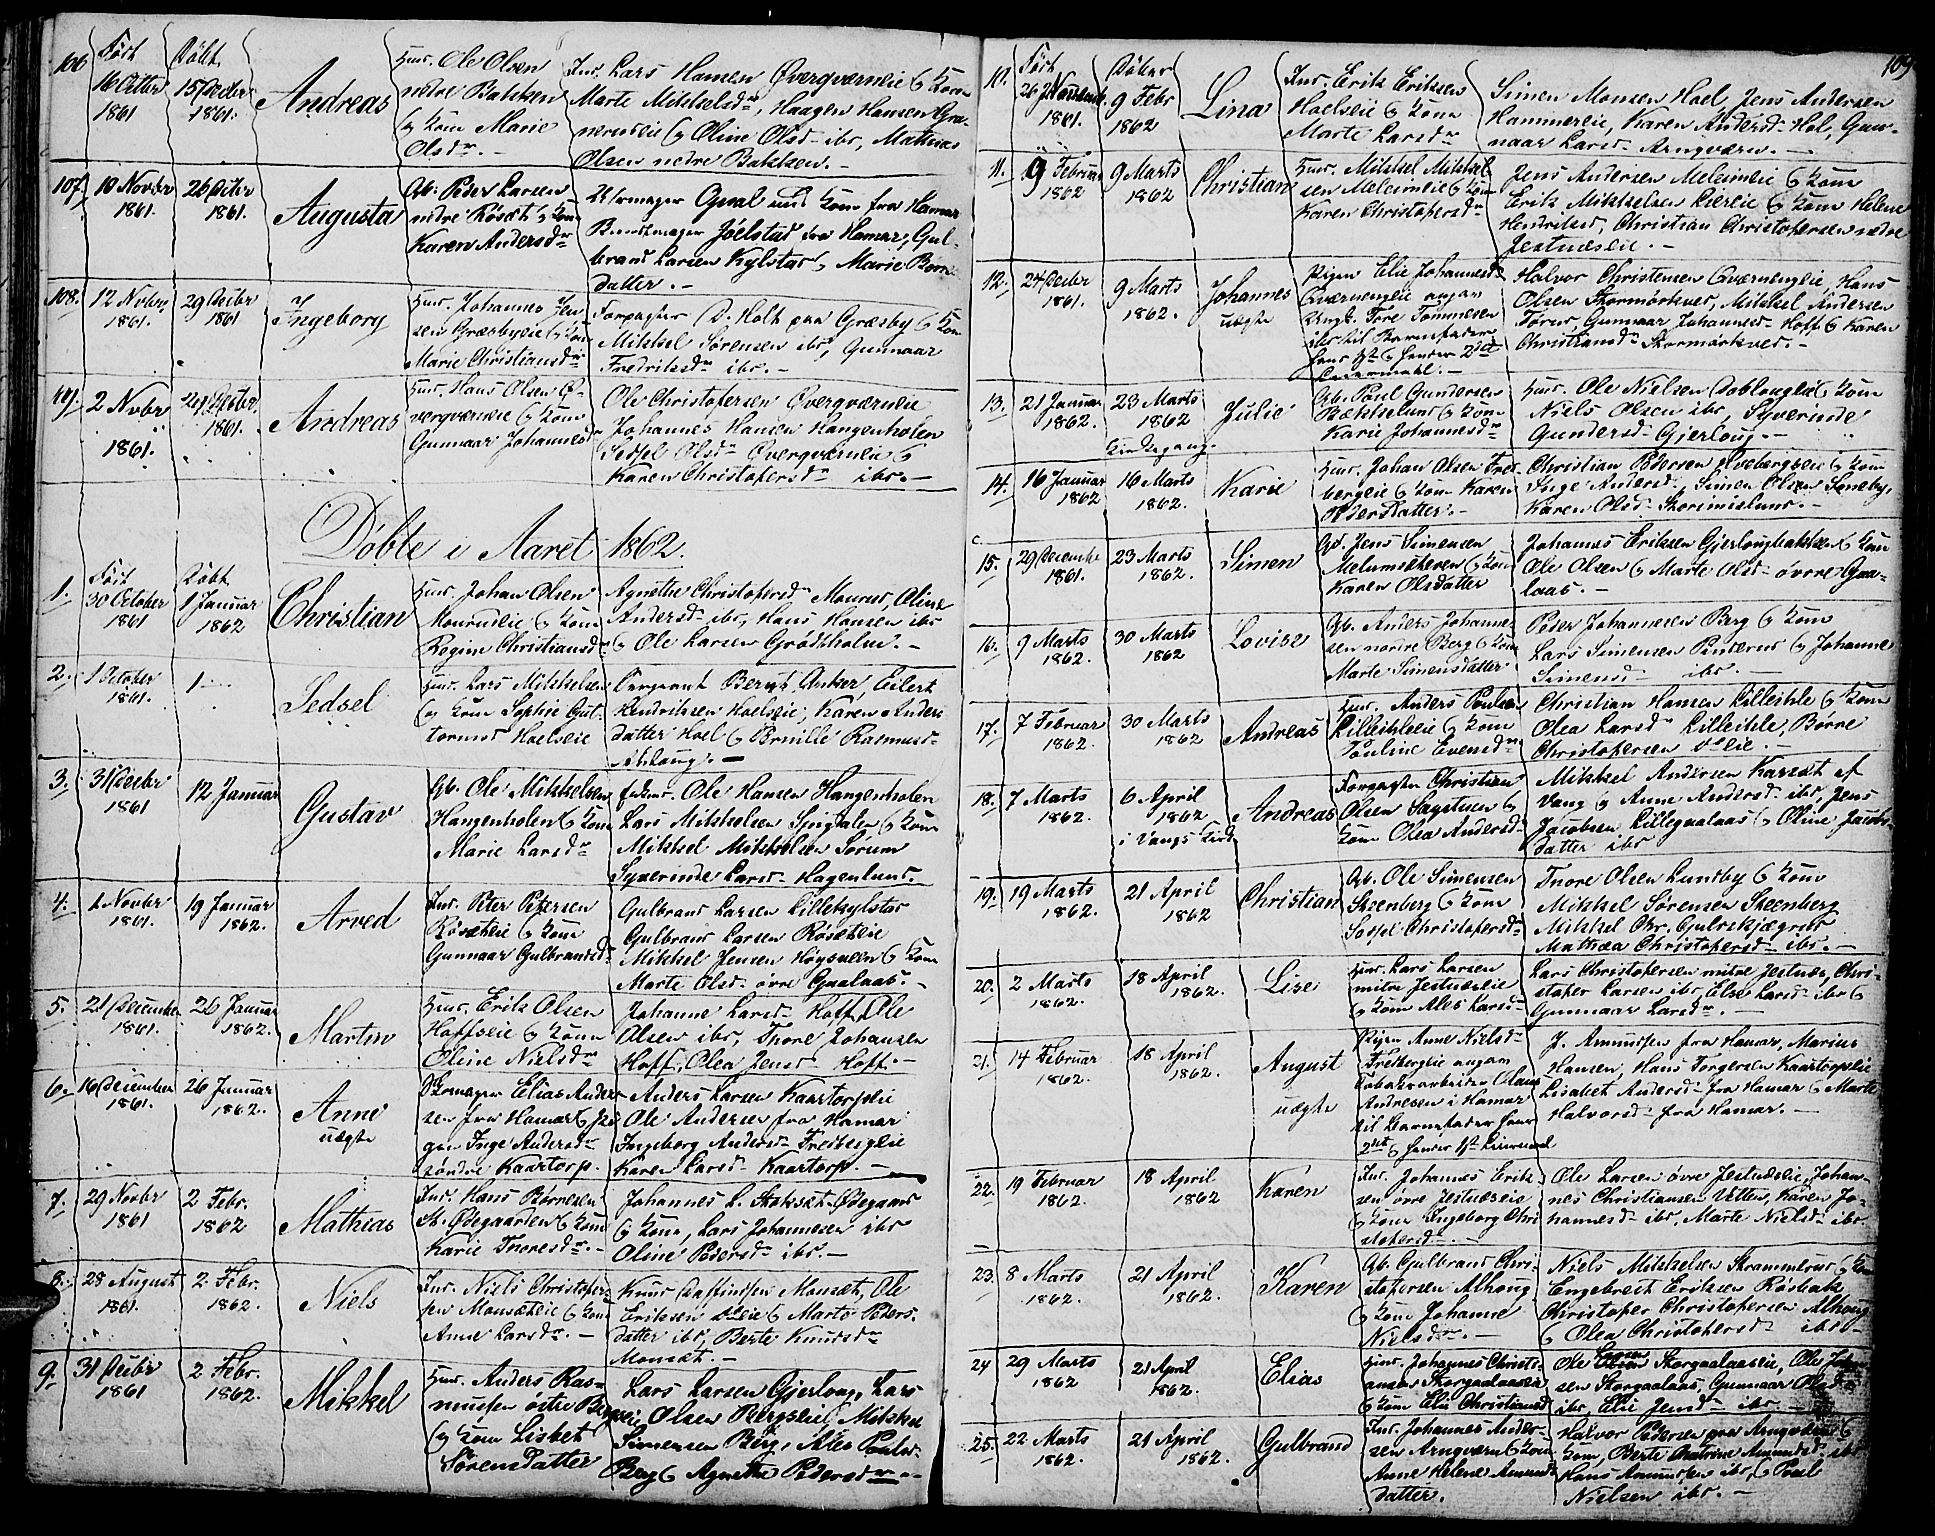 106
Født
16 Octbr
1861
Døbt
15 Decbr
1861.
Andreas
Huus. Ole Olsen
nedre Bakken
og Kone Marie
Olsdr. -
Inds. Lars Hansen Øvergværneie & Kone
Marte Mikkelsdr, Haagen Hansen
neie og Oline Olsd. ibr, Mathias
Olsen nedre Bakken. -
107.
10 Novbr
1861.
26 Decbr
1861.
Augusta
Gb: Peder Larsen
nedre Røsæt & Kone
Karen Andersdr
Gual med Kone fra Hamar
Buntmager Joelstad fra Hamar, Gul-
brand Larsen Kylstad & Marie Børre
datter. -
108.
12 Novbr.
1861.
29 Decbr
1861
Ingeborg
Huus. Johannes Jen
sen Græsbyeie & Kone
Marie Christiansdr
Forpagter D. Holt paa Græsby & Kone
Mikkel Sørensen ibr, Gunnaar
Fredriksdr ibr. -
109.
2 Novbr
1861.
1861.
Andreas
Huus. Hans Olsen Ø-
vergværneie & Kone
Gunnaar Johannesdr
Ole Christophersen Øvergværneie
Johannes Hansen Hangenholen
Sedsel Olsdr Øvergværneie &
Karen Christophersdr ibr. -
Døbte i Aaret 1862.
1.
Født
30 October
1861
Døbt
1 Januar
1862
Christian
Huus. Johan Olsen
& Kone
Regine Christiansdr
Agnethe Christophersdr Maurud, Oline
Andersd. ibr, Hans Hansen ibr
& Ole Larsen Grødtholm. -
2.
1 October
1861.
1 -
Sedsel
Huus. Lars Mikkelsen
og Kone Sophie Gut-
tormsd Hoelseie
Sergeant Bernt Anker, Eilert
Hendriksen Hoelseie, Karen Anders
datter Hoel & Pernille Rasmusd.
3.
31 Decbr
1861
12 Januar
Gustav
Gb. Ole Mikkelsen
Hangenholen & Kone
Marie Larsdr
Ole Hansen Hangenholen
Lars Mikkelsen Spigdalen & Kone
Mikkel Mikkelsen Sorum
Syverinde Larsd. Hagenlund.
4.
1 Novbr
1861.
19 Januar
1862.
Arved
Inds. Peter Petersen
Røsæteie & Kone
Gunnaar Gulbrandsd.
Gulbrand Larsen Lillekylstad
Gulbrand Larsen Røsæteie
Mikkel Jensen Høgsveen & Kone
Marte Olsd. øvre Gaalaas. -
5.
21 Decembr
1861.
26 Januar
1862.
Martin
Huus. Erik Olsen
Hoffseie & Kone
Oline Nielsdr
Johanne Larsd. Hoff, Ole
Olsen ibr, Thore Johansen
Hoff, Olea Jensd. Hoff. -
6.
16 December
1861.
26 Januar
1862.
Anne
uægte
Elias Ander-
sen fra Hamar & Pi-
gen Inge Andersdr
søndre Kaartorp.
Anders Larsen Kaartorpeie
Ole Andersen fra Hamar
Ingeborg Andersd. Fredbergeie
Karen Larsd. Kaartorp. -
7.
29 Novbr
1861
2 Febr.
1862
Mathias
Inds. Hans Børresen
St. Ødegaarden & Kone
Karie Thoresdr. -
Johannes L. Stoksæt Ødegaard
& Kone, Lars Johannesen ibr
Oline Pedersd. ibr. -
8.
28 August
1861.
2 Febr.
1862.
Niels
Inds. Niels Christopher-
sen Monsæteie & Kone
Anne Larsdr. -
Knud Daffindsen Monsæt, Ole
Eriksen dleie & Marte Peders-
datter ibr, Berte Knudsdr
Monsæt. -
9.
31 Decbr
1861
2 Febr.
1862.
Mikkel
Huus. Anders Ras-
mussen østre Bergseie
og Kone Lisbet
Sørensdatter
Lars Larsen Gjerlong, Lars
Olsen Bergseie, Mikkel
Simensen Berg, Ales Poulsd.
Berg & Agnethe Pedersdr. -
109
10.
Født
26 Novembr
1861.
Døbt
9 Febr
1862
Lina
Inds. Erik Eriksen
Hoelseie & Kone
Marte Larsdr
Simen Monsen Hoel, Jens Andersen
Hammereie, Karen Andersd. Hol, Gun-
naar Larsd. Arngværn. -
11.
9 Februar
1862
9 Marts
1862
Christian
Huus. Mikkel Mikkel
sen Melumeie & Kone
Karen Christophersdr
Jens Andersen Melumeie & Kone
Erik Mikkelsen Lieeie & Kone Helene
Hendriksd, Christian Christophersen nedre
Jestnæseie. -
12.
24 Decbr
1861.
9 Marts
1862.
Johannes
uægte
Pigen Elie Johannesd.
Qværnengeie angav
Ungk. Tore Tommesen
ibr til Barnefader
hans 1st & hendes 2det
Leiermaal. -
Halvor Christensen Qværnengeie, Hans
Olsen Stormørkved, Mikkel Andersen
Torud, Gunnaar Johannesd. Hoff & Karen
Christiansdr Stormørkved. -
13.
21 Januar
1862.
23 Marts
1862
Julie
Gb. Poul Gundersen
Bækkelund & Kone
Karie Johannesdr
Huus. Ole Nielsen Doblougeie & Kone
Niels Olsen ibr, Syverinde
Gundersd. Gjerlong. -
14.
16 Januar
1862
16 Marts
1862.
Karie
Huus. Johan Olsen Fred-
bergeie & Kone Karen
Pedersdatter. -
Christian Pedersen Hvebergseie & Kone
Inge Andersd., Simen Olsen Soneby,
Karen Olsd. Storimislund. -
15.
29 Decembr
1861.
23 Marts
1862.
Simen
Gb. Jens Simensen
Melumsætereie & Kone
Karen Olsdatter
Johannes Eriksen Gjerlongbakken & Kone
Ole Olsen & Marte Olsd. øvre Gaa-
laas. -
16.
9 Marts
1862.
30 Marts
1862
Lovise
Gb. Anders Johanne-
sen nordre Berg & Kone
Marte Simensdatter
Peder Johannesen Berg & Kone
Lars Simensen Pinderud & Johanne
Simensd. ibr. -
17.
7 Februar
1862.
30 Marts
1862
Andreas
Huus. Anders Poulsen
Lilleihleeie & Kone
Pauline Evensdr
Christian Hansen Lilleihle & Kone
Olea Larsdr Lilleihle, Børre
Christophersen dleie. -
18.
7 Marts
1862.
6 April
1862
i Vangs Kirke
Andreas
Forpagter Christian
Olsen Sagstuen &
Kone Olea Andersd.
Mikkel Andersen Karsæt af
Vang & Anne Andersd. ibr, Jens
Jacobsen Lillegaalaas & Oline Jacobs-
datter ibr
19.
19 Marts
1862.
21 April
1862
Christian
Gb. Ole Simensen
Steenberg & Kone
Sedsel Christophersd.
Thore Olsen Lundby & Kone
Mikkel Sørensen Steenberg
Mikkel Chr. Gulrekjægrud
Mathea Christophersd. ibr. -
20.
2 Marts
1862.
18 April
1862.
Lise
Huus. Lars Larsen
mitre Jestnæseie
& Kone Ales Larsd.
Lars Christophersen mitre Jestnæs, Chri-
stopher Larsen ibr, Else Larsd. ibr &
Gunnaar Larsdr. -
21.
14 Februar
1862.
18 April
1862.
August
uægte
Pigen Anne Nielsd.
Fredbergeie angav
Tobaksarbeider Olaus
Andresen i Hamar
til Barnefader hans
2det & hendes 1st Leiermaal
J. Amundsen fra Hamar, Marius
Hansen, Hans Torgersen Kaartorpeie
Lisabet Andersd. fra Hamar & Marte
Halvorsd. fra Hamar. -
22.
19 Februar
1862.
18 April
1862
Karen
Inds. Johannes Erik-
sen øvre Jestnæseie
& Kone Ingeborg Chri
stophersd. -
Ole Larsen øvre Jestnæseie, Johan-
nes Christiansen Vetten, Karen Jo-
hannesd. ibr, Marte Nielsd. ibr.
23.
8 Marts
1862.
21 April
1862.
Karen
Gb. Gulbrand Chri-
stophersen Alhoug
& Kone Johanne
Nielsdr. -
Niels Mikkelsen Strammerud & Kone
Engebret Eriksen Røsbak
Christopher Christophersen Alhoug
& Olea Christophersd. ibr -
24
29 Marts
1862
21 April
1862.
Elias
Huus. Johannes Christi-
ansen Storgaalaaseie
& Kone Elie Christiansd.
Ole Storgaalaaseie, Ole Johan
sen Storgaalaas, Gunnaar Olsd.
ibr, Elie Jensd. ibr -
25.
22 Marts
1862.
21 April
1862.
Gulbrand
Inds. Johannes Ander-
sen Arngværn & Kone
Anne Helene Amunds
datter.
Halvor Pedersen Arngværneie &
Kone, Berte Amundsd. ibr
Hans Amundsen ibr, & Poul
Nielsen ibr. -